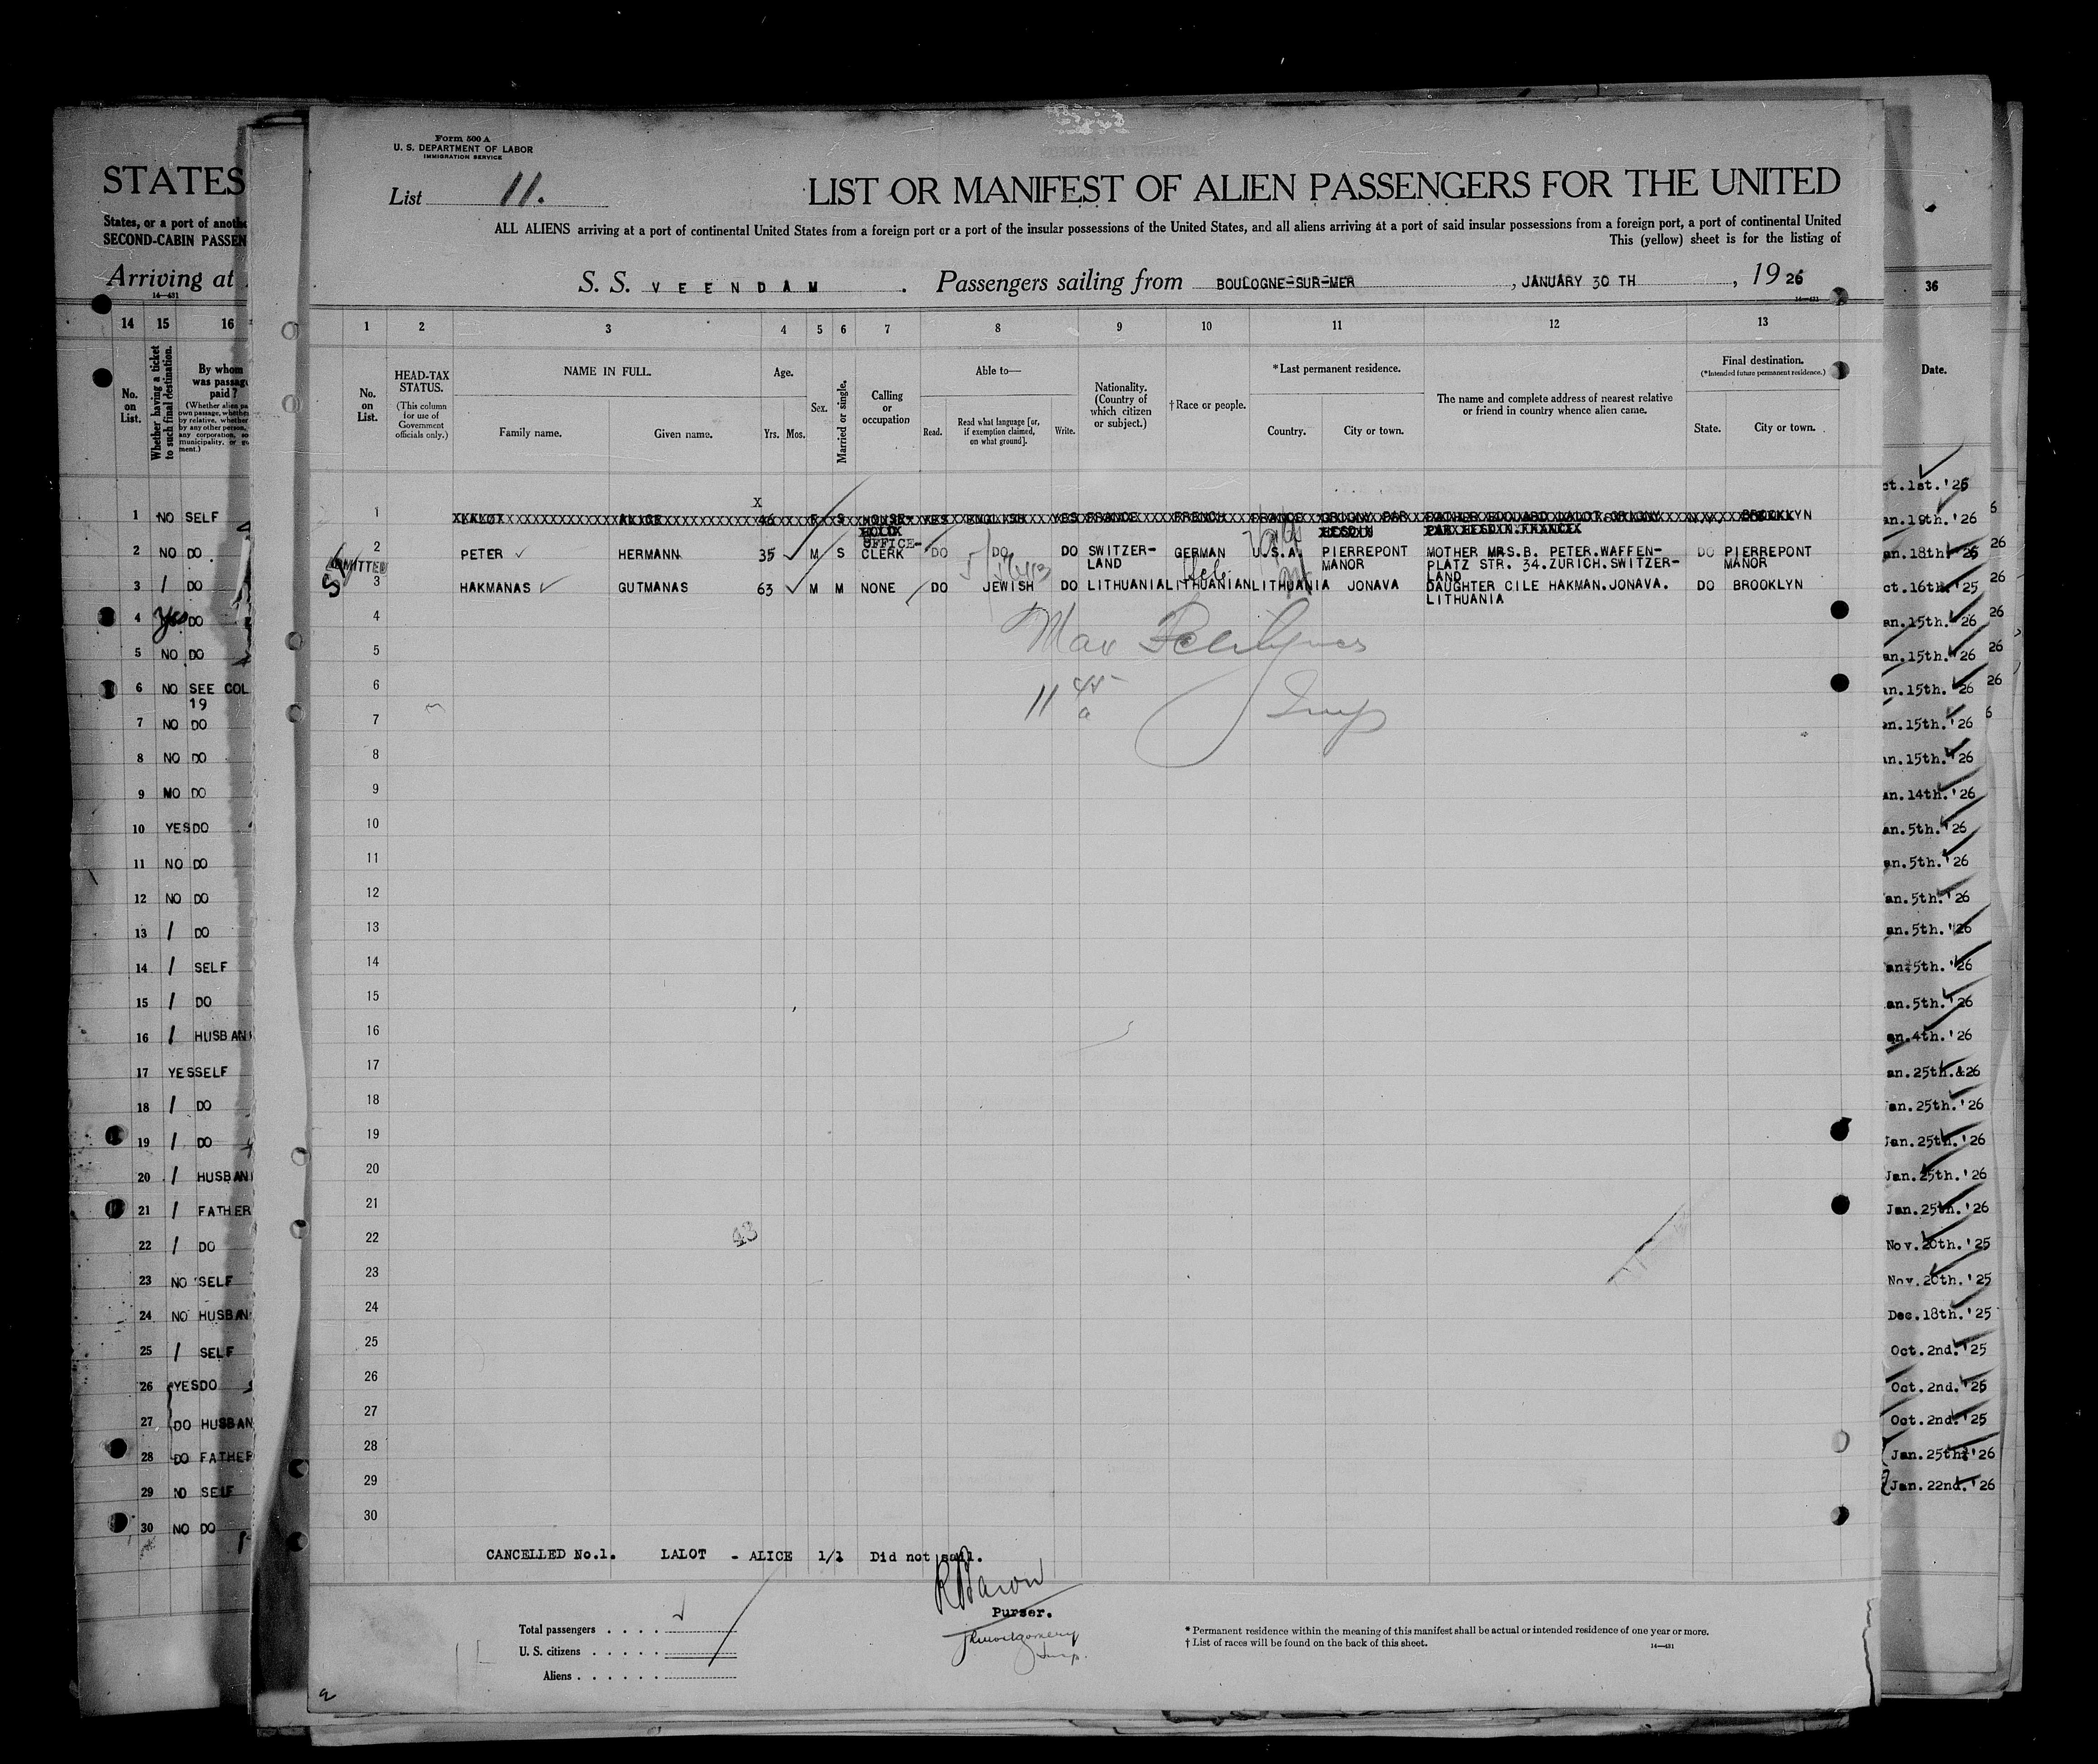 Form 500 A
U. S. DEPARTMENT OF LABOR
IMMIGRATION SERVICE
List 11.
LIST OR MANIFEST OF ALIEN PASSENGERS FOR THE UNITED
ALL ALIENS arriving at a port of continental United States from a foreign port or a port of the insular possessions of the United States, and all aliens arriving at a port of said insular possessions from a foreign port, a port of continental United
This (yellow) sheet is for the listing of
S. S. VEENDAM. Passengers sailing from BOULOGNE-SUR-MER, JANUARY 30 TH, 1926
14—431
1 2 3 4 5 6 7 8 9 10 11 12 13
No. on List.
HEAD-TAX STATUS.
(This column for use of Government officials only.)
NAME IN FULL.
Family name. Given name.
Age.
Yrs. Mos.
Sex.
Married or single.
Calling or occupation
Able to—
Read. Read what language [or, if exemption claimed, on what ground]. Write.
Nationality. (Country of which citizen or subject.)
†Race or people.
*Last permanent residence.
Country. City or town.
The name and complete address of nearest relative or friend in country whence alien came.
Final destination.
(*Intended future permanent residence.)
State. City or town.
1 LALOT ALICE 46 F S HOUSE-HOLD YES ENGLISH YES FRANCE FRENCH FRANCE GRIGNY PAR HESDIN FATHER EDOUARD LALOT GRIGNY PAR HESDIN.FRANCE BROOKLYN
2 PETER HERMANN 35 M S OFFICE-CLERK DO DO DO SWITZER-LAND GERMAN U.S.A. PIERREPONT MANOR MOTHER MRS.B. PETER.WAFFEN-PLATZ STR. 34.ZURICH.SWITZER-LAND DO PIERREPONT MANOR
ADMITTED
3 HAKMANAS GUTMANAS 63 M M NONE DO JEWISH DO LITHUANIA LITHUANIAN LITHUANIA JONAVA DAUGHTER CILE HAKMAN.JONAVA. LITHUANIA DO BROOKLYN
4
5
6
7
8
9
10
11
12
13
14
15
16
17
18
19
20
21
22
23
24
25
26
27
28
29
30
Max
11 45 a
Insp
43
CANCELLED No.1. LALOT - ALICE 1/1 Did not sail.
R Baron
Purser.
Insp.
Total passengers
U. S. citizens
Aliens
* Permanent residence within the meaning of this manifest shall be actual or intended residence of one year or more.
† List of races will be found on the back of this sheet.
14—431
STATES
States, or a port of anothe
SECOND-CABIN PASSEN
Arriving at
14—431
14 15 16
No. on List.
Whether having a ticket to such final destination.
By whom was passage paid?
1 NO SELF
2 NO DO
3 / DO
4 Yes DO
5 NO DO
6 NO SEE COL 19
7 NO DO
8 NO DO
9 NO DO
10 YES DO
11 NO DO
12 NO DO
13 / DO
14 / SELF
15 / DO
16 / HUSBAN
17 YES SELF
18 / DO
19 / DO
20 / HUSBAN
21 / FATHER
22 / DO
23 NO SELF
24 NO HUSBAN
25 / SELF
26 YES DO
27 DO HUSBAN
28 DO FATHER
29 NO SELF
30 NO DO
36
Date.
ct.1st.'25
an.19th.'26
an.18th.'26
ct.16th.'25
an.15th.'26
an.15th.'26
an.15th.'26
an.15th.'26
an.15th.'26
an.14th.'26
an.5th.'26
an.5th.'26
an.5th.'26
an.5th.'26
an.5th.'26
an.5th.'26
an.4th.'26
an.25th.&26
an.25th.'26
Jan.25th.'26
Jan.25th.'26
Jan.25th.'26
Nov.20th.'25
Nov.20th.'25
Dec.18th.'25
Oct.2nd.'25
Oct.2nd.'25
Oct.2nd.'25
Jan.25th.'26
Jan.22nd.'26